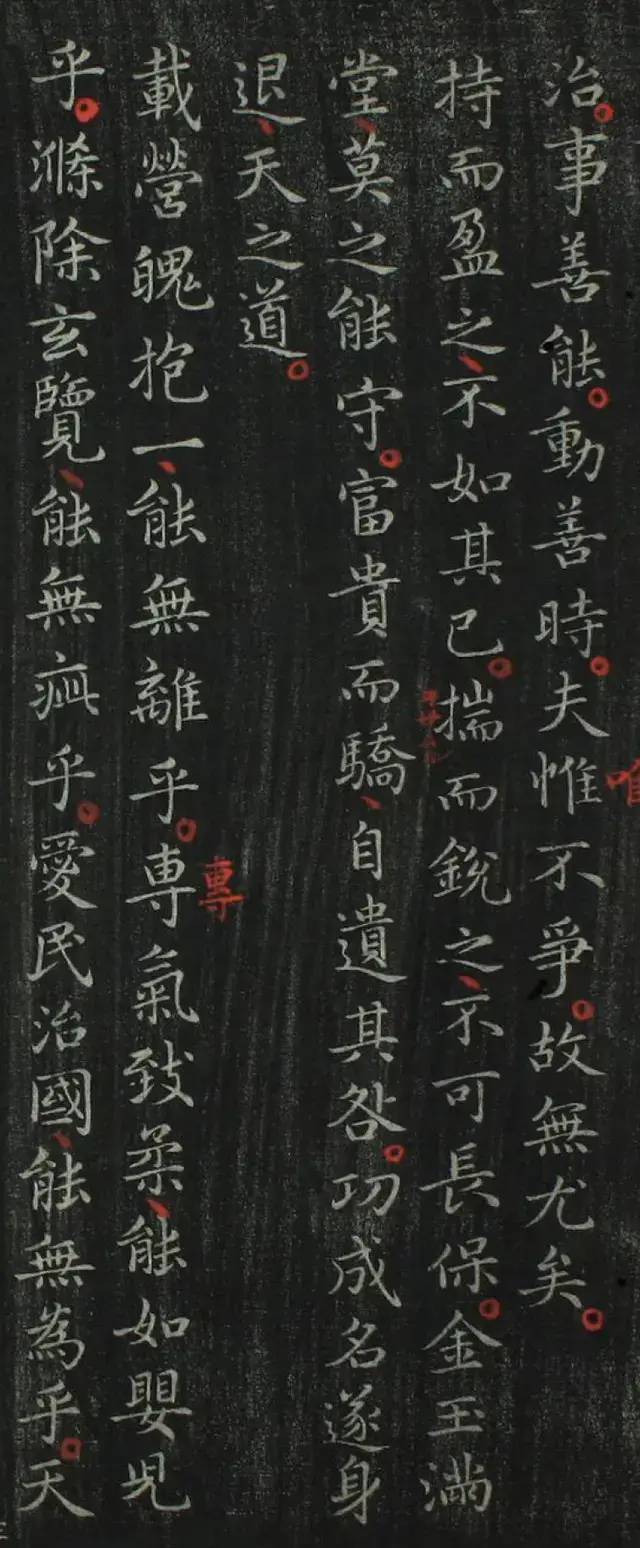 治。事善能。動善時。夫惟不爭。故無尤矣。
唯
持而盈之、不如其已。揣而銳之、不可長保。金玉滿
堂、莫之能守。富貴而驕、自遺其咎。功成名遂身
退、天之道。
載營魄抱一、能無離乎。専氣致柔、能如嬰兒
專
乎。滌除玄覽、能無疵乎。愛民治國、能無為乎。天